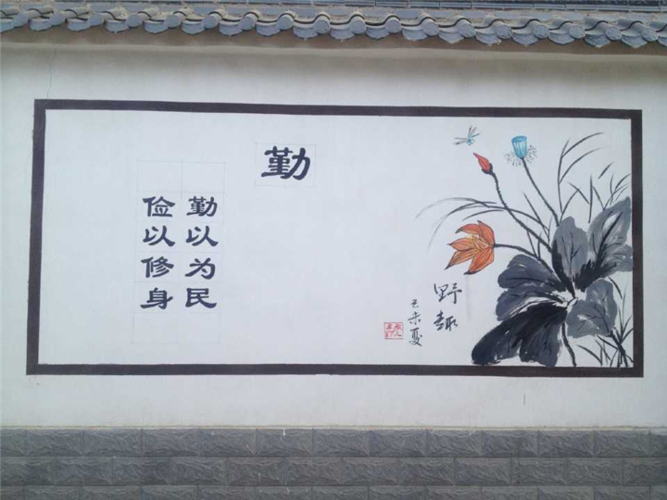 勤
勤以为民
俭以修身
野趣
乙未夏